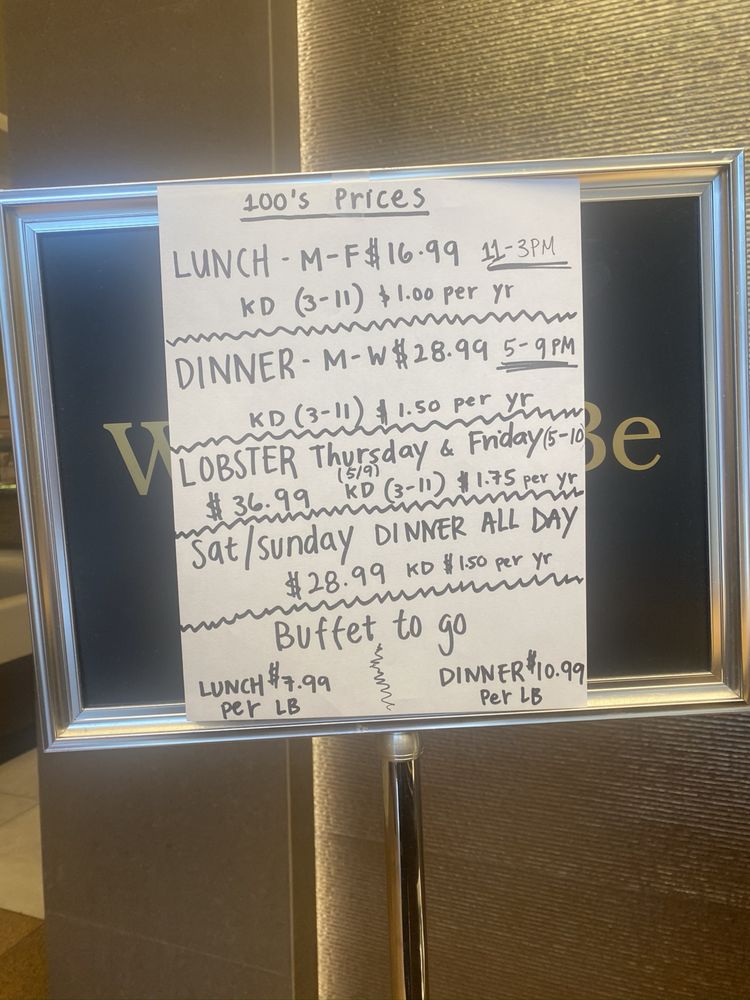 100's Prices
LUNCH - M-F $16.99 11-3PM
KD (3-11) $1.00 per yr
DINNER - M-W $28.99 5-9PM
KD (3-11) $1.50 per yr
LOBSTER Thursday & Friday (5-10)
(5/9)
$36.99 KD (3-11) $1.75 per yr
Sat/Sunday DINNER ALL DAY
$28.99 KD $1.50 per yr
Buffet to go
LUNCH $7.99 DINNER $10.99
per LB Per LB
W Be